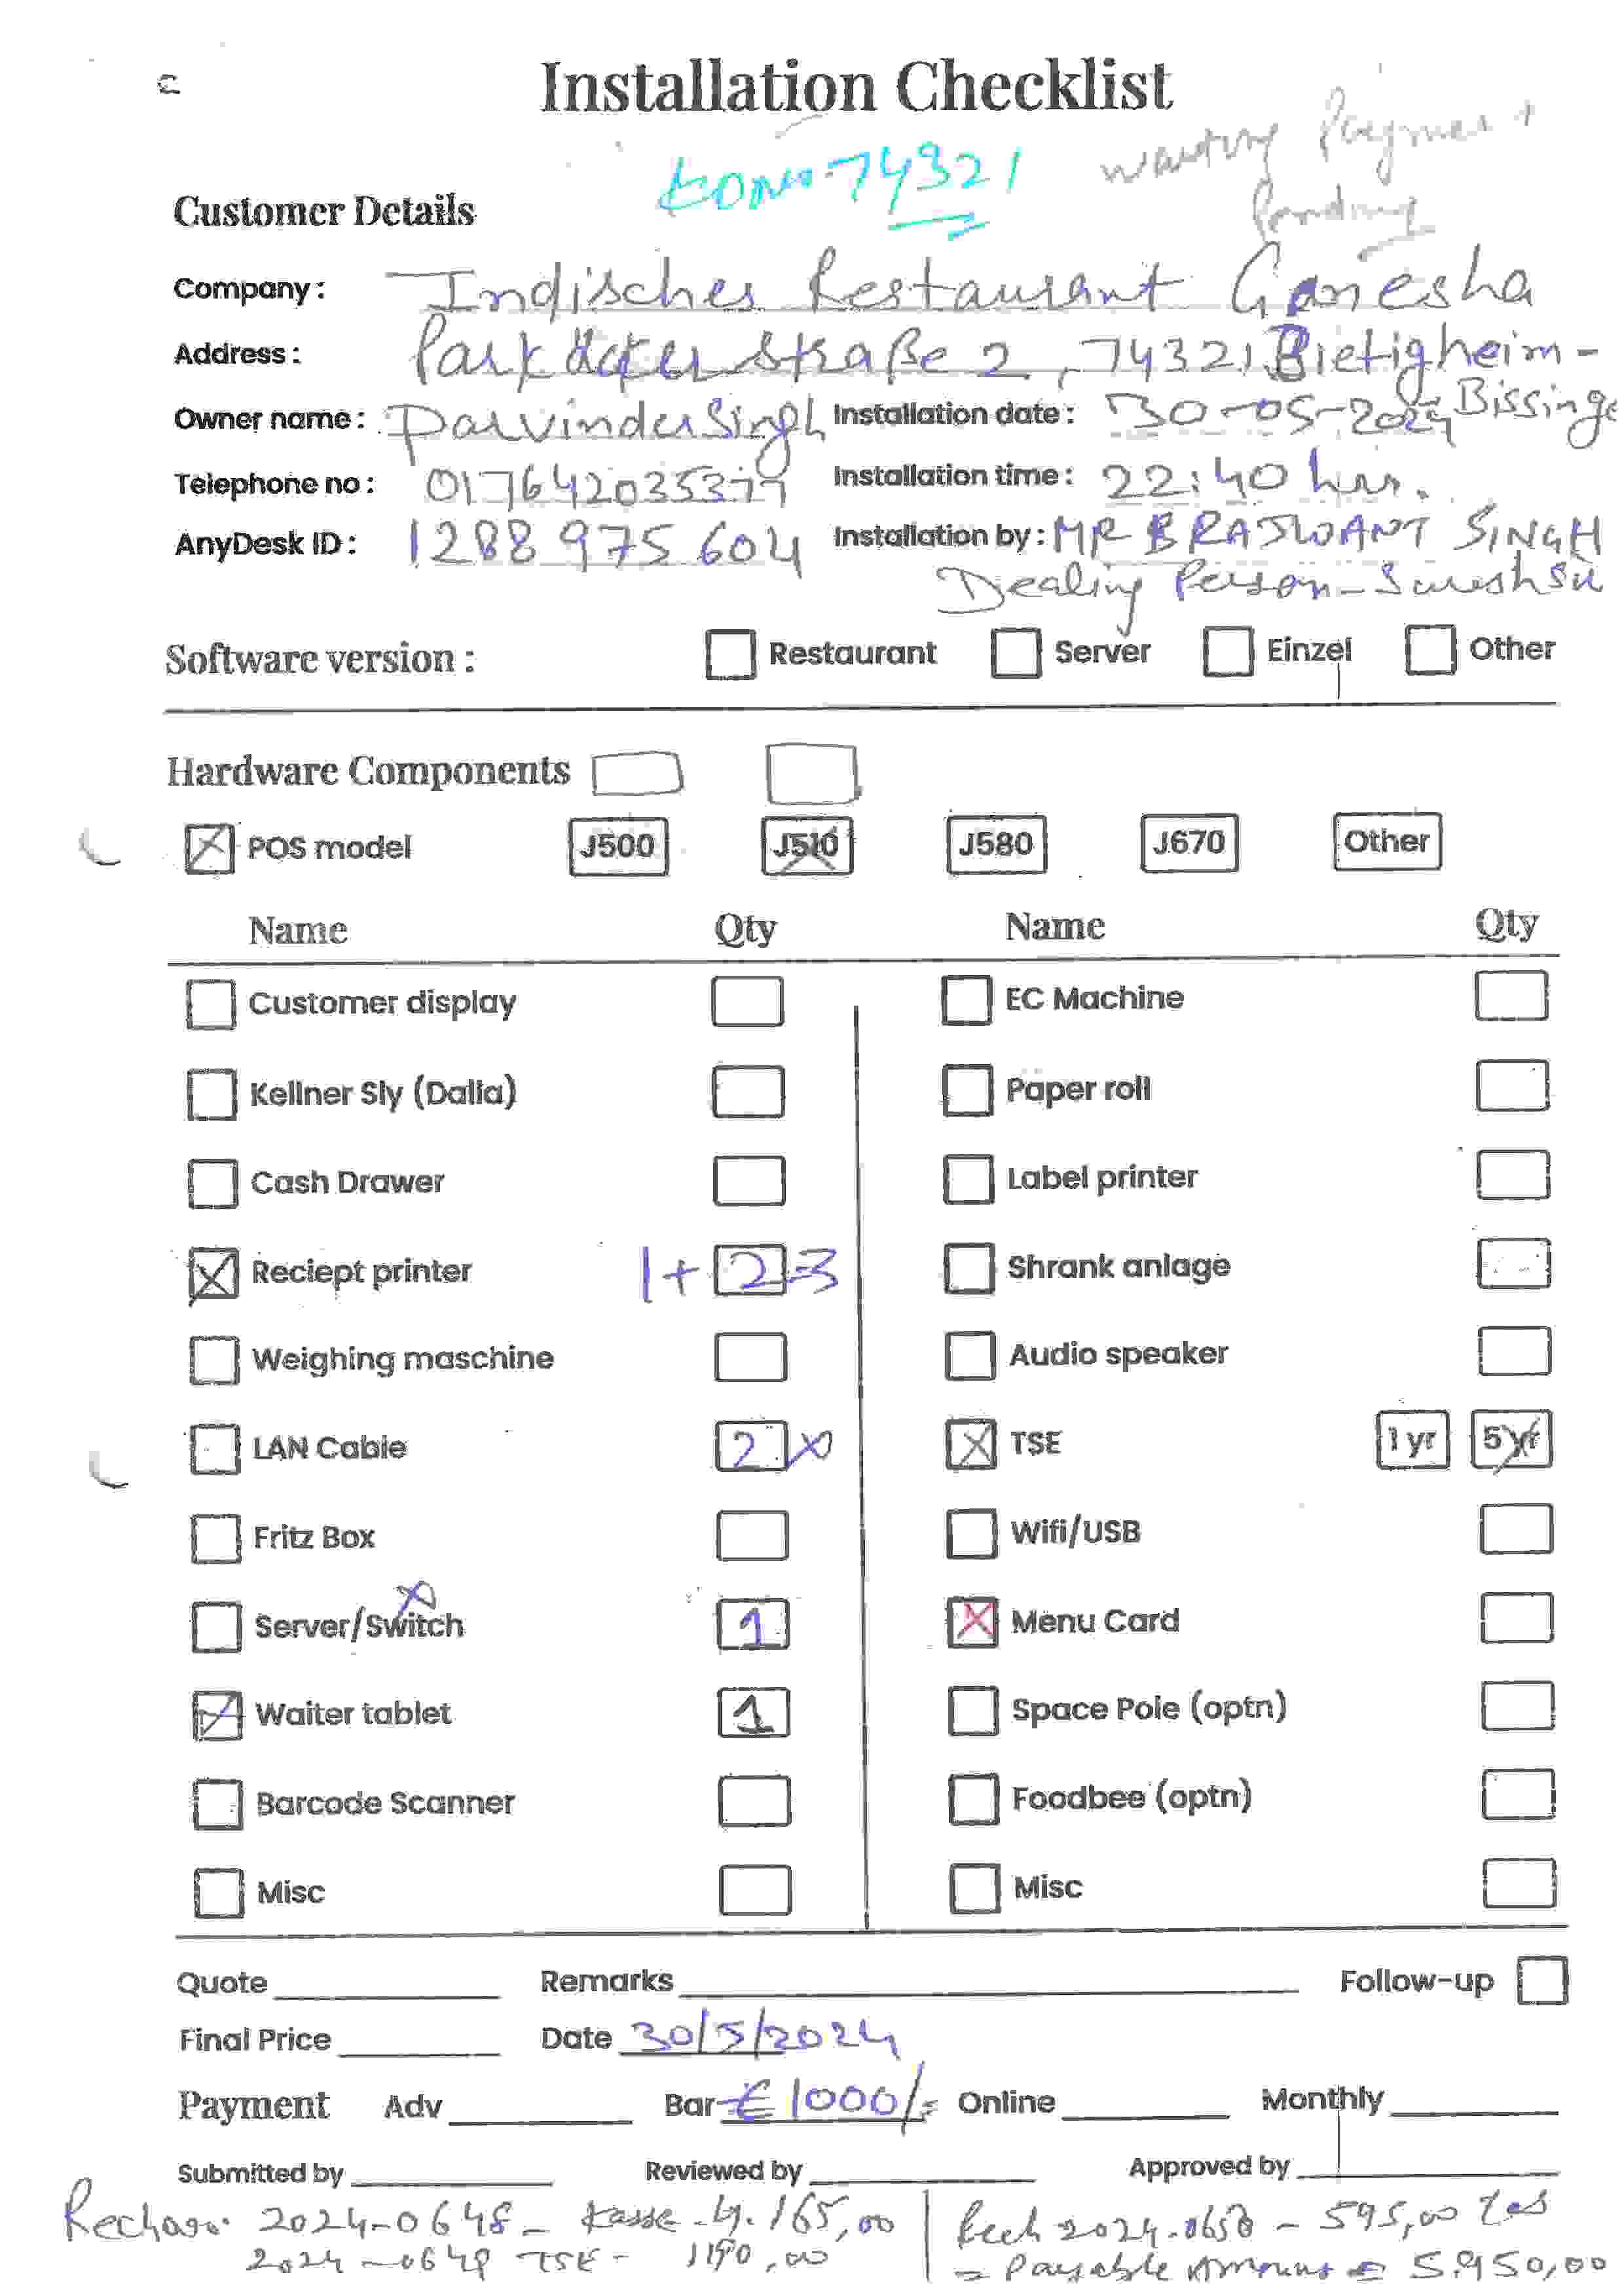 Installation Checklist
Waiting Payment
Pending
74321
Customer Details
Company: Indisches Restaurant Ganesha
Address: straße 2, 74321 Bietigheim-
Bissinge
Owner name: Parvinder Singh Installation date: 30-05-2024
Telephone no: Installation time: 22:40 hrs.
AnyDesk ID: 1288 975 604 Installation by: MR SINGH
Dealing Person - Suresh
Software version: Restaurant Server Einzel Other
Hardware Components
POS model J500 J510 J580 J670 Other
Name Qty Name Qty
Customer display EC Machine
Kellner Sly (Dalla) Paper roll
Cash Drawer Label printer
Reciept printer 1+2=3 Shrank anlage
Weighing maschine Audio speaker
LAN Cable 2 TSE 1 yr 5 yr
Fritz Box Wifi/USB
Server/Switch 1 Menu Card
Waiter tablet 1 Space Pole (optn)
Barcode Scanner Foodbee (optn)
Misc Misc
Quote Remarks Follow-up
Final Price Date 30/5/2024
Payment Adv Bar € 1000/= Online Monthly
Submitted by Reviewed by Approved by
2024-0648 - Kasse - 4.165,00 | Rech 2024-0650 - 595,00
2024-0649 TSE - 1190,00 = Payable Amount = 5.950,00